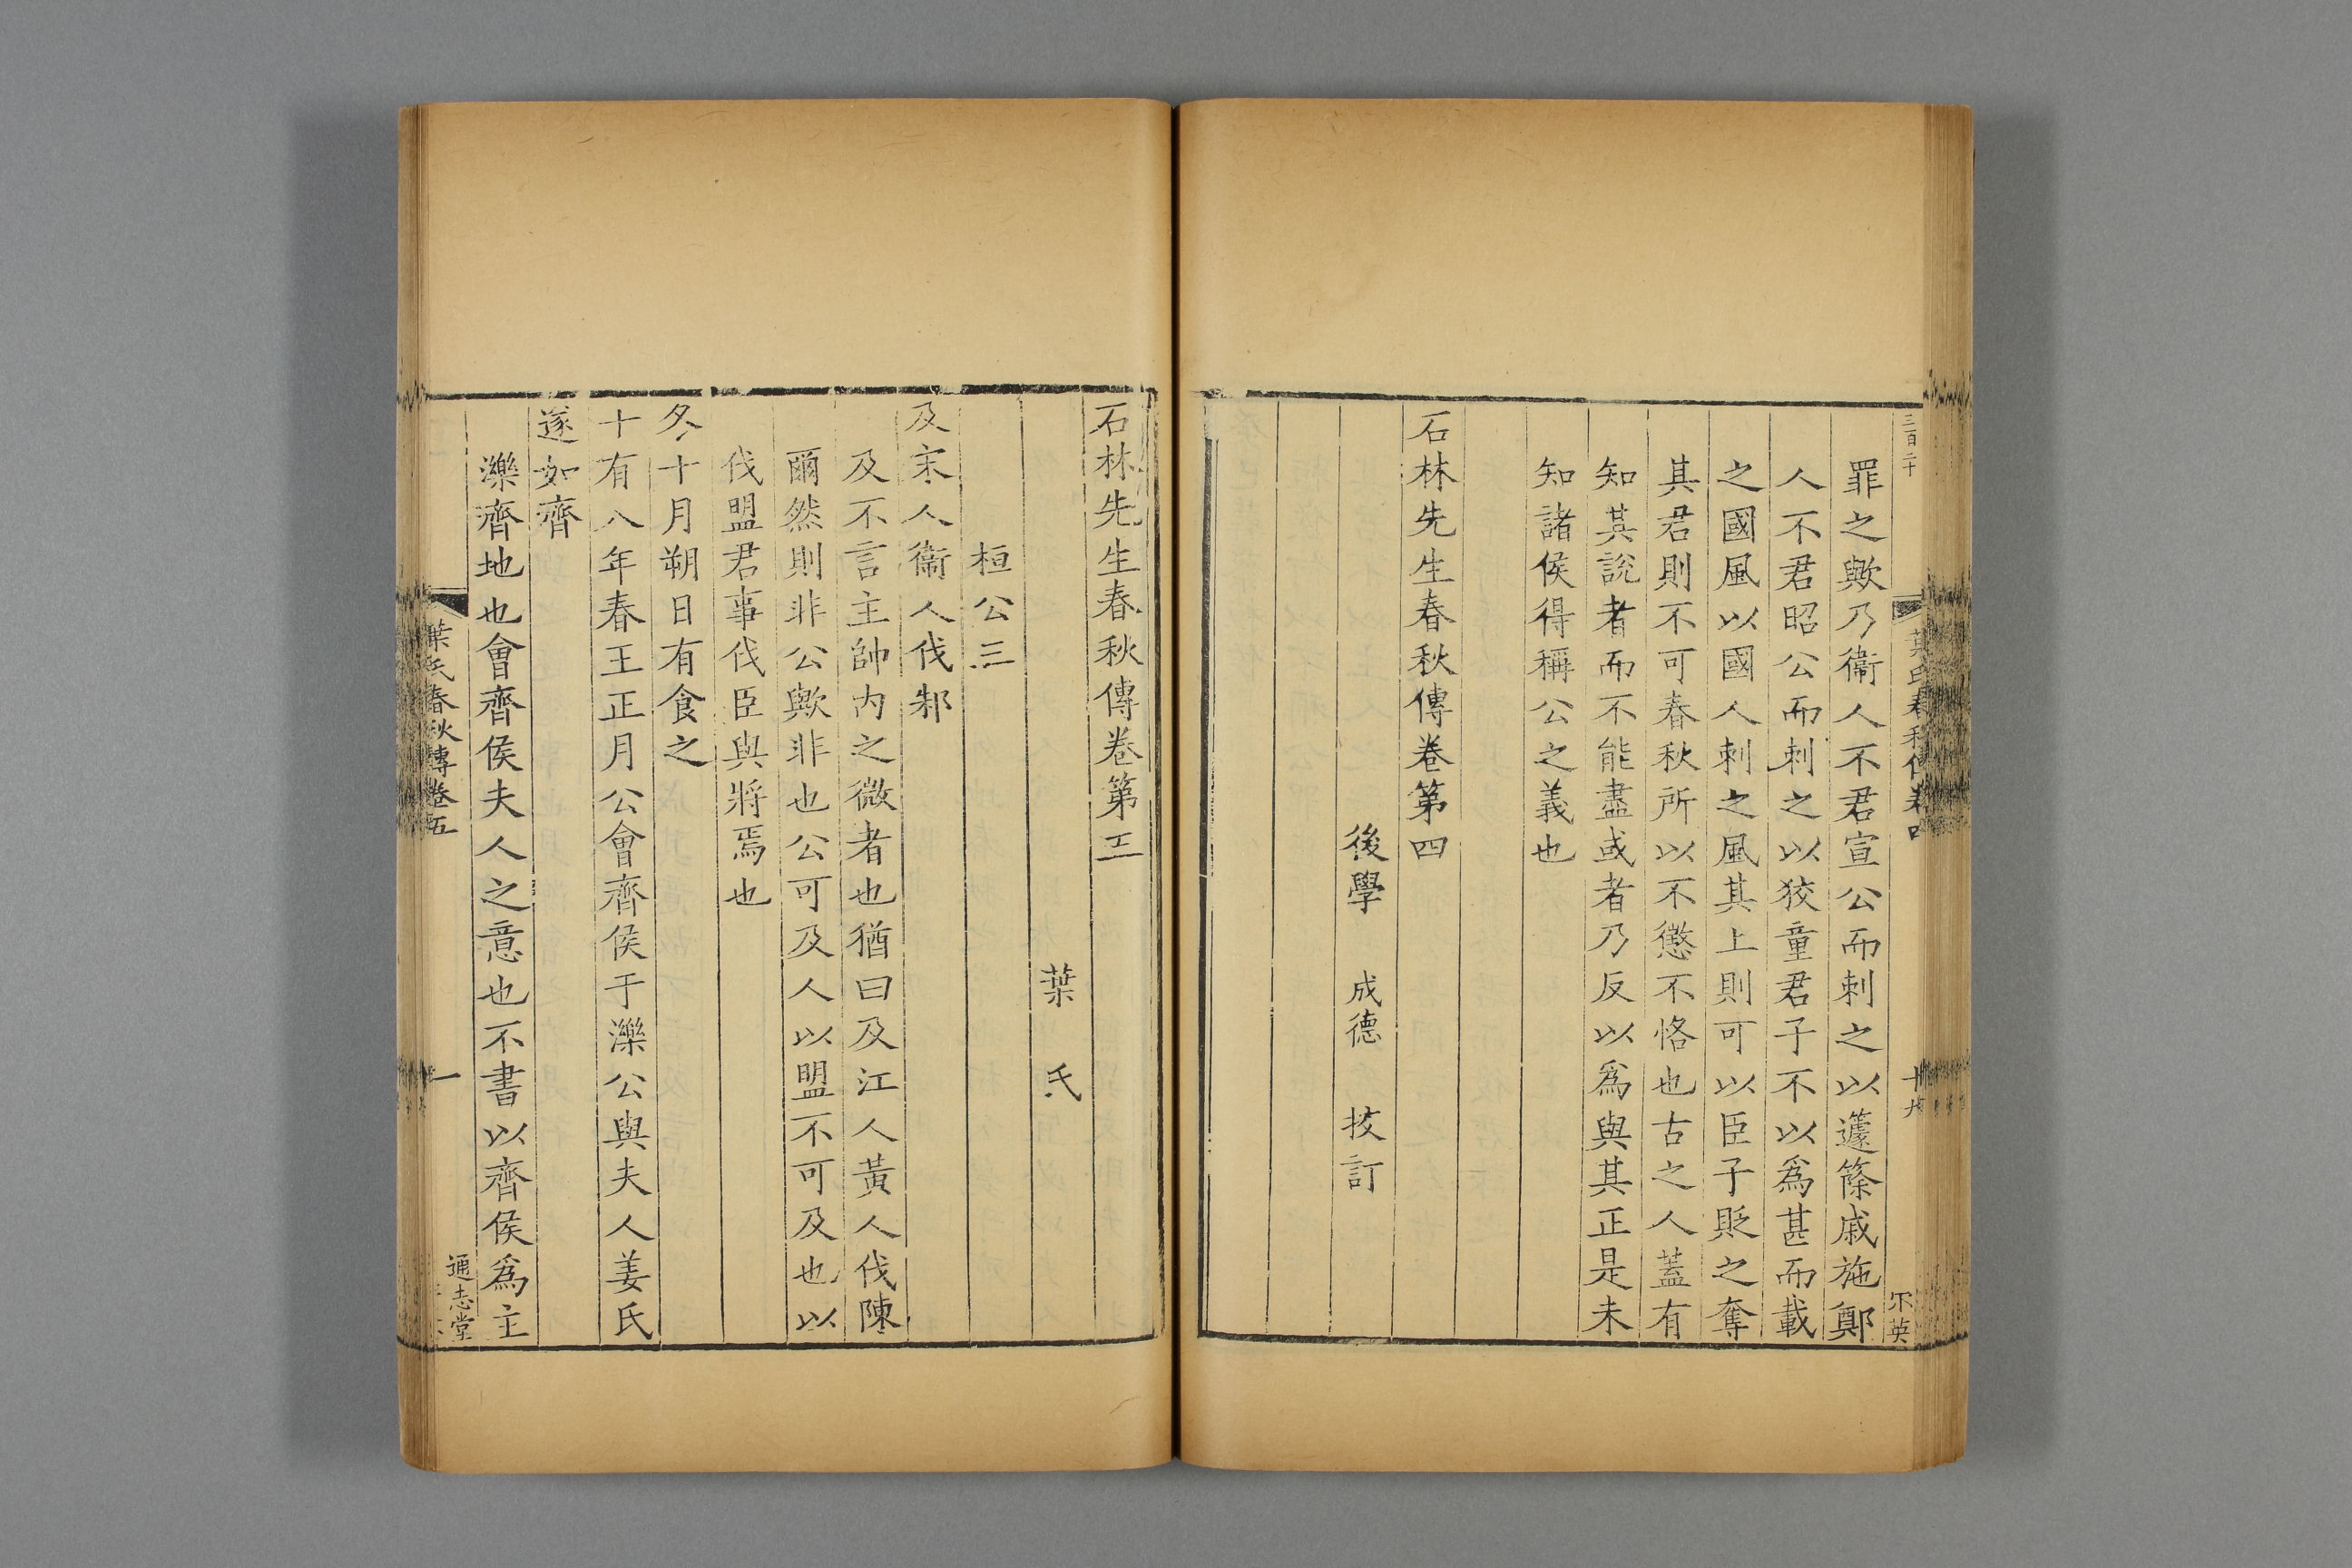 三百二十
罪之歟乃衞人不君宣公而刺之以籧篨戚施鄭
人不君昭公而刺之以狡童君子不以爲甚而載
之國風以國人刺之風其上則可以臣子貶之奪
其君則不可春秋所以不懲不恪也古之人蓋有
知其說者而不能盡或者乃反以爲與其正是未
知諸侯得稱公之義也
石林先生春秋傳卷第四
後學 成德 挍訂
石林先生春秋傳卷第五
葉氏
桓公三
及宋人衞人伐邾
及不言主帥内之微者也猶曰及江人黃人伐陳
爾然則非公歟非也公可及人以盟不可及也以
伐盟君事伐臣與將焉也
冬十月朔日有食之
十有八年春王正月公會齊侯于濼公與夫人姜氏
遂如齊
濼齊地也會齊侯夫人之意也不書以齊侯爲主
葉氏春秋傳卷五
一
通志堂